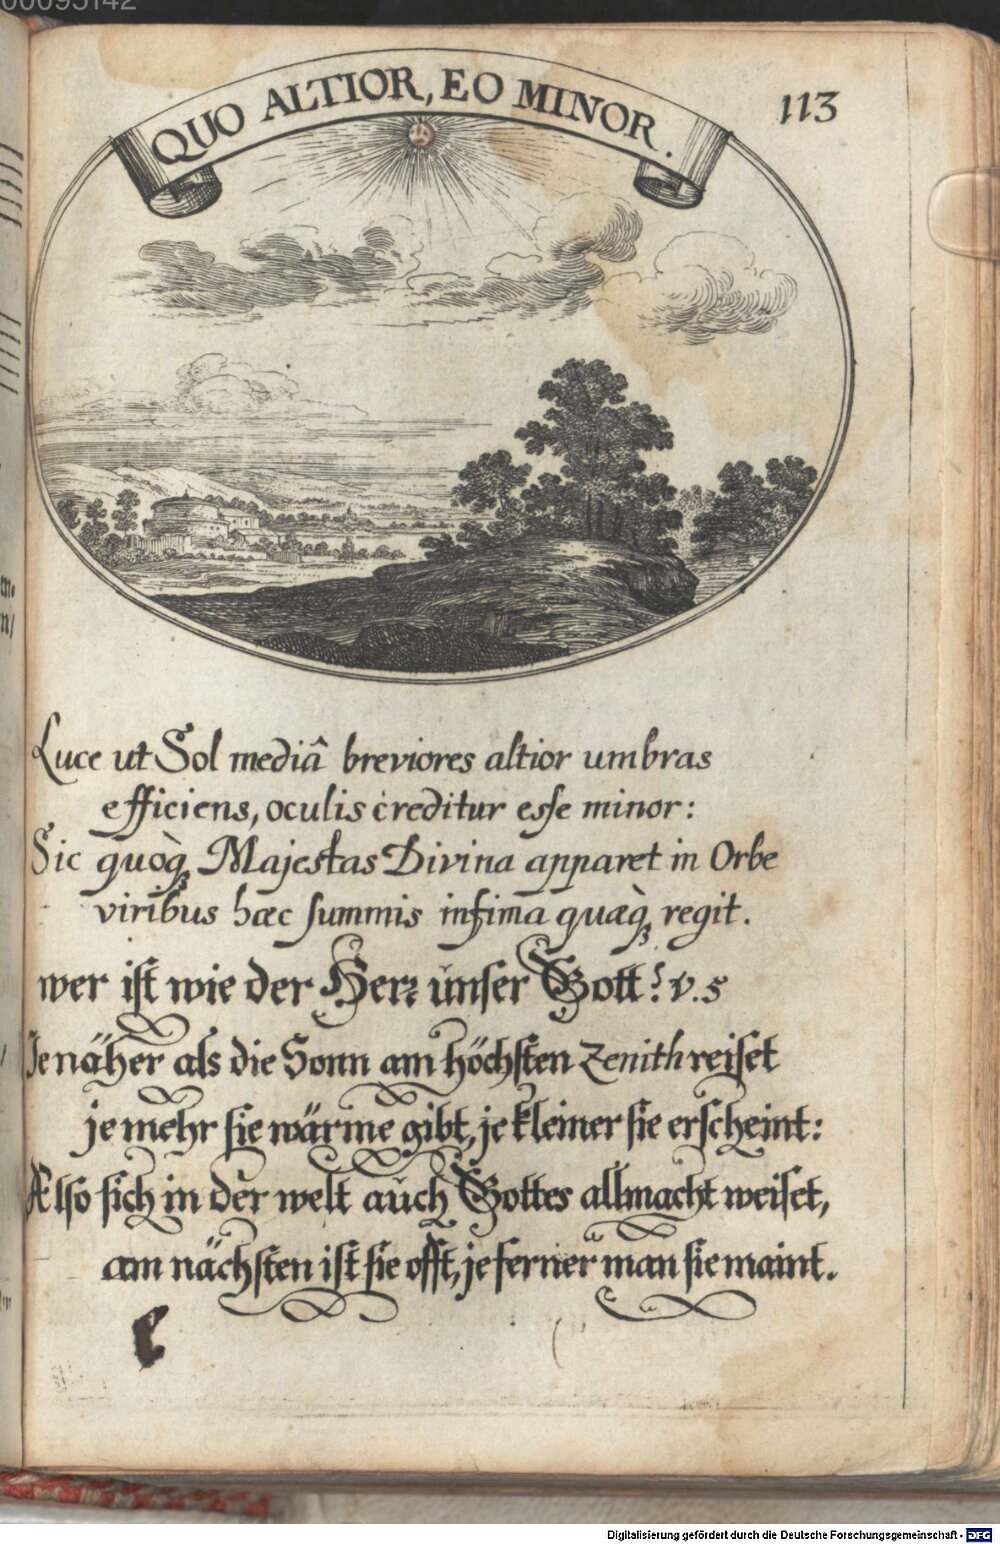 00095142
QUO ALTIOR, EO MINOR.
113
Luce ut Sol mediâ breviores altior umbras
efficiens, oculis creditur esse minor:
Sic quòq; Majestas Divina apparet in Orbe
viribus hæc summis infima quæq; regit.
wer ist wie der Herr unser Gott? v. 5
Je näher als die Sonn am höchsten Zenith reiset
je mehr sie wärme gibt, je kleiner sie erscheint:
Also sich in der welt auch Gottes allmacht weiset,
am nächsten ist sie offt, je ferner man sie maint.
Digitalisierung gefördert durch die Deutsche Forschungsgemeinschaft - DFG